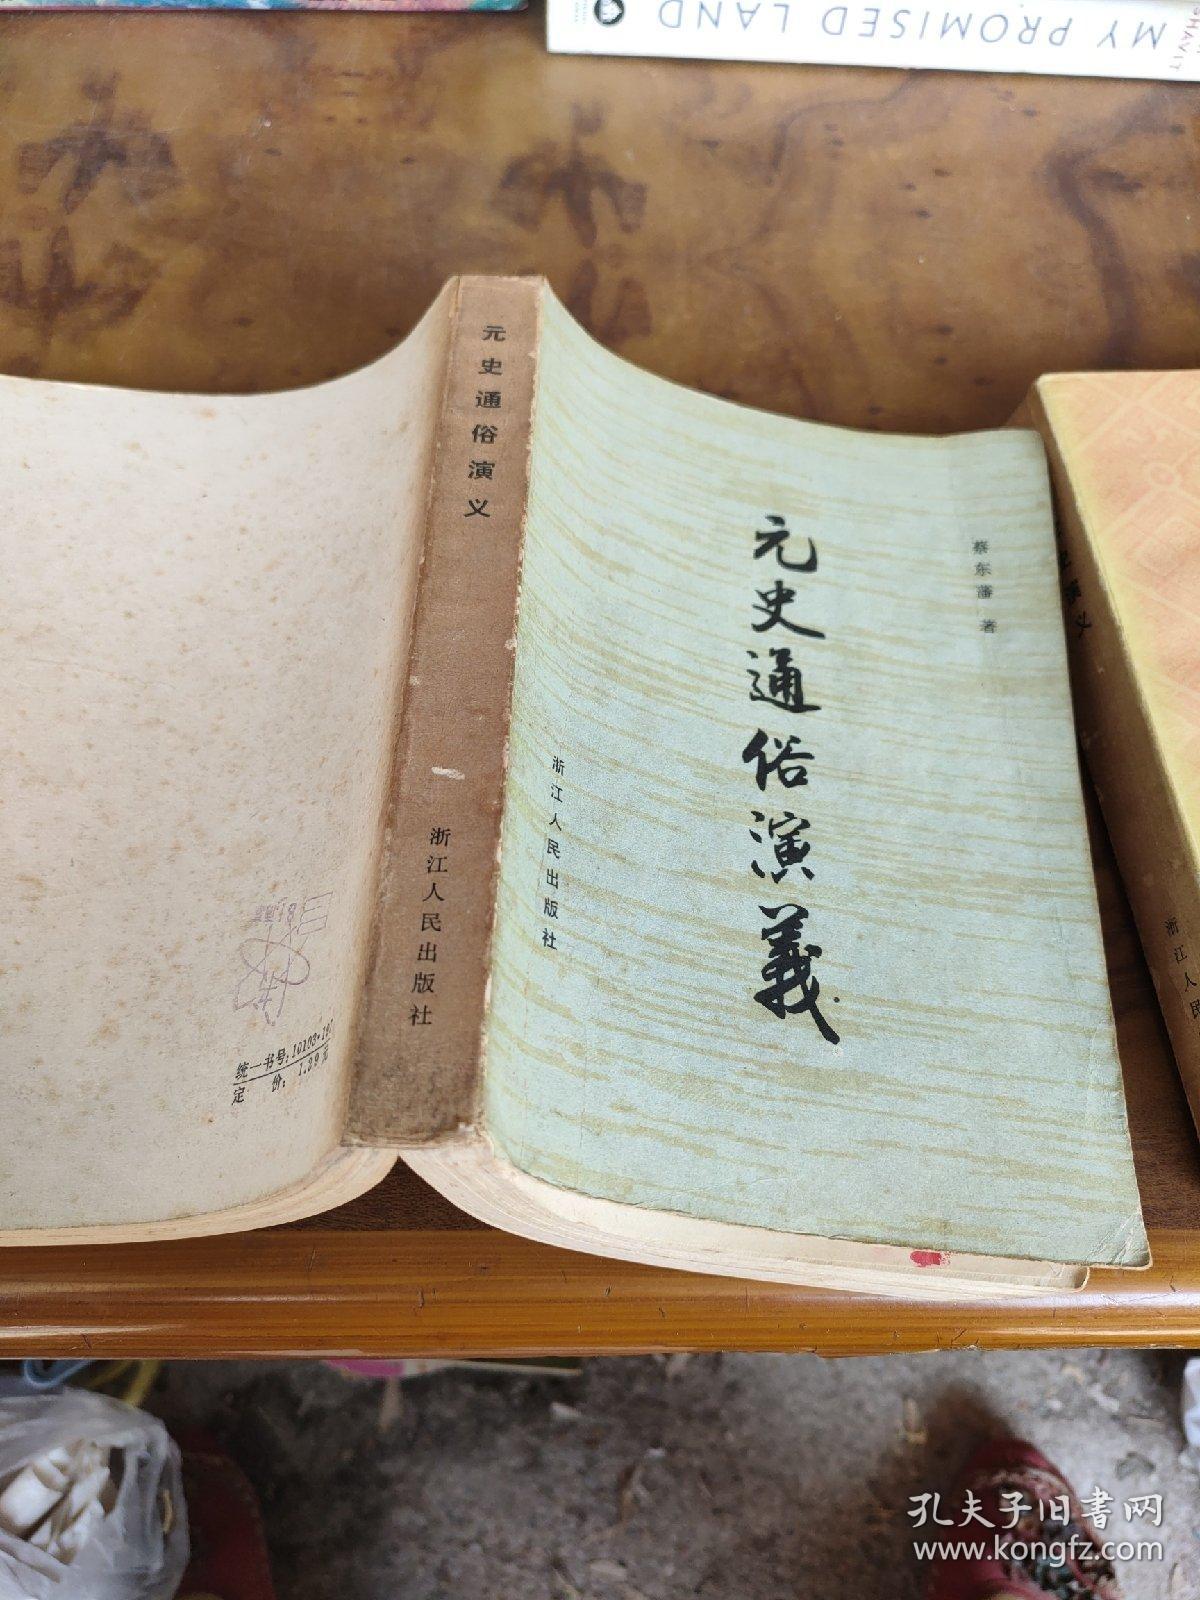 MY PROMISED LAND
HAVIT
元史通俗演义
浙江人民出版社
蔡东藩 著
元史通俗演義
浙江人民出版社
统一书号:10103·1
定价:1.29元
演义
浙江人民
孔夫子旧书网
www.kongfz.com